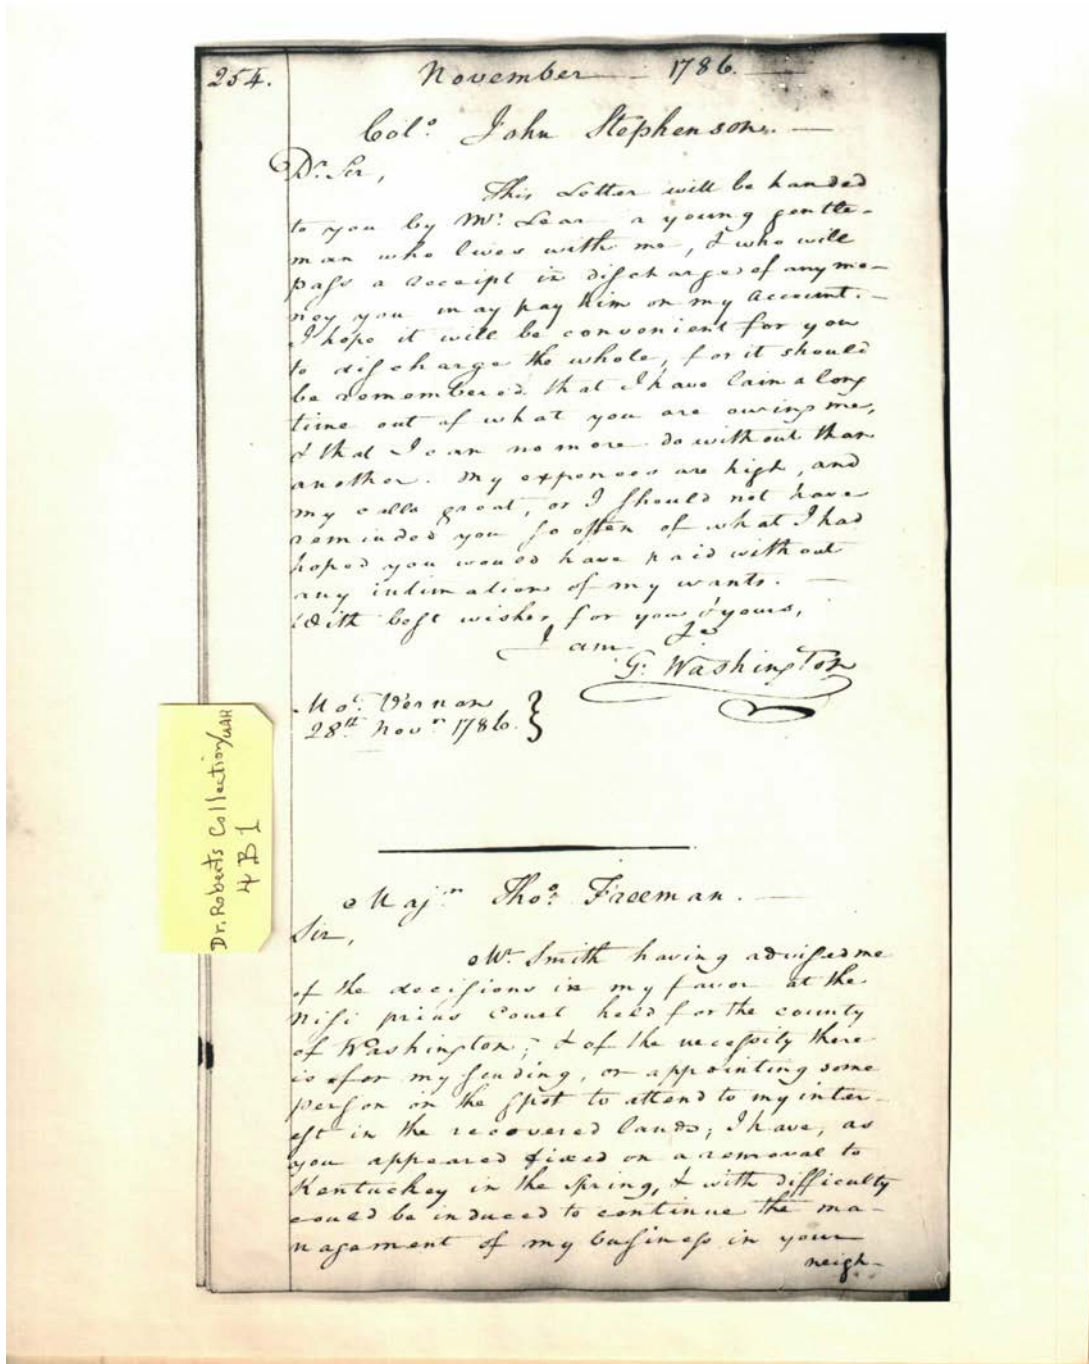 254.
November 1786.
Colo. John Stephenson. —
Dr. Sir,
This Letter will be handed
to you by Mr. Lear a young gentle-
man who lives with me, & who will
pass a receipt in discharge of any mo-
ney you may pay him on my account. —
I hope it will be convenient for you
to discharge the whole, for it should
be remembered that I have lain a long
time out of what you are owing me,
& that I can no more do without than
another. My expences are high, and
my calls great, or I should not have
reminded you so often of what I had
hoped you would have paid without
any intimation of my wants. —
With best wishes for you & yours,
I am &c
G: Washington
Mot. Vernon
28th. Novr. 1786. }
Majr. Thos. Freeman. —
Sir,
Mr. Smith having advised me
of the decisions in my favor at the
Nisi prius Court held for the county
of Washington; & of the necessity there
is for my sending, or appointing some
person on the spot to attend to my inter-
est in the recovered lands; I have, as
you appeared fixed on a removal to
Kentuckey in the spring, & with difficulty
could be induced to continue the ma-
nagement of my business in your
neigh-
Dr. Roberts Collection/UAH
4B1